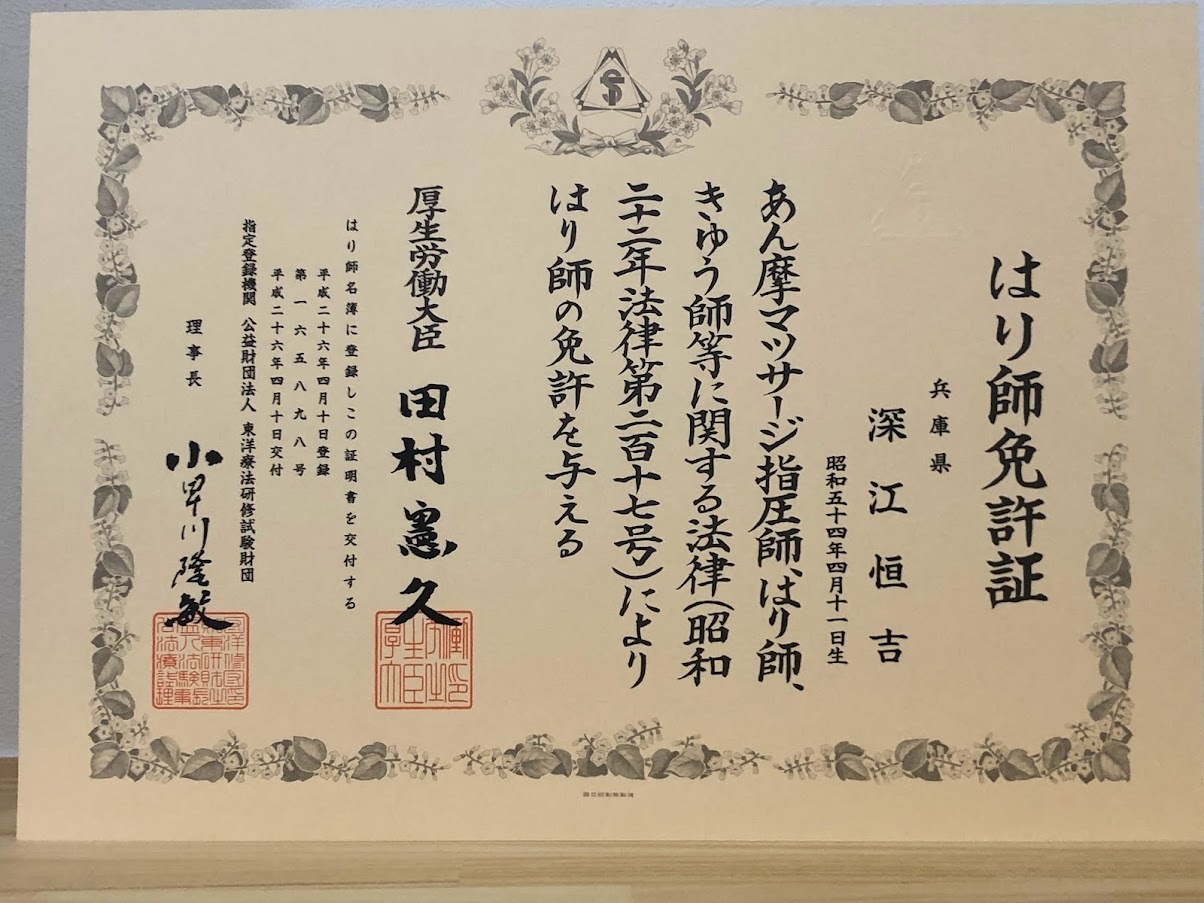 はり師免許証
兵庫県
深江恒吉
昭和五十四年四月十一日生
あん摩マツサージ指圧師、はり師、
きゆう師等に関する法律(昭和
二十二年法律第二百十七号)により
はり師の免許を与える
厚生労働大臣 田村憲久
はり師名簿に登録しこの証明書を交付する
平成二十六年四月十日登録
第一六五八九八号
平成二十六年四月十日交付
指定登録機関 公益財団法人 東洋療法研修試験財団
理事長 小早川隆敏
国立印刷局製造